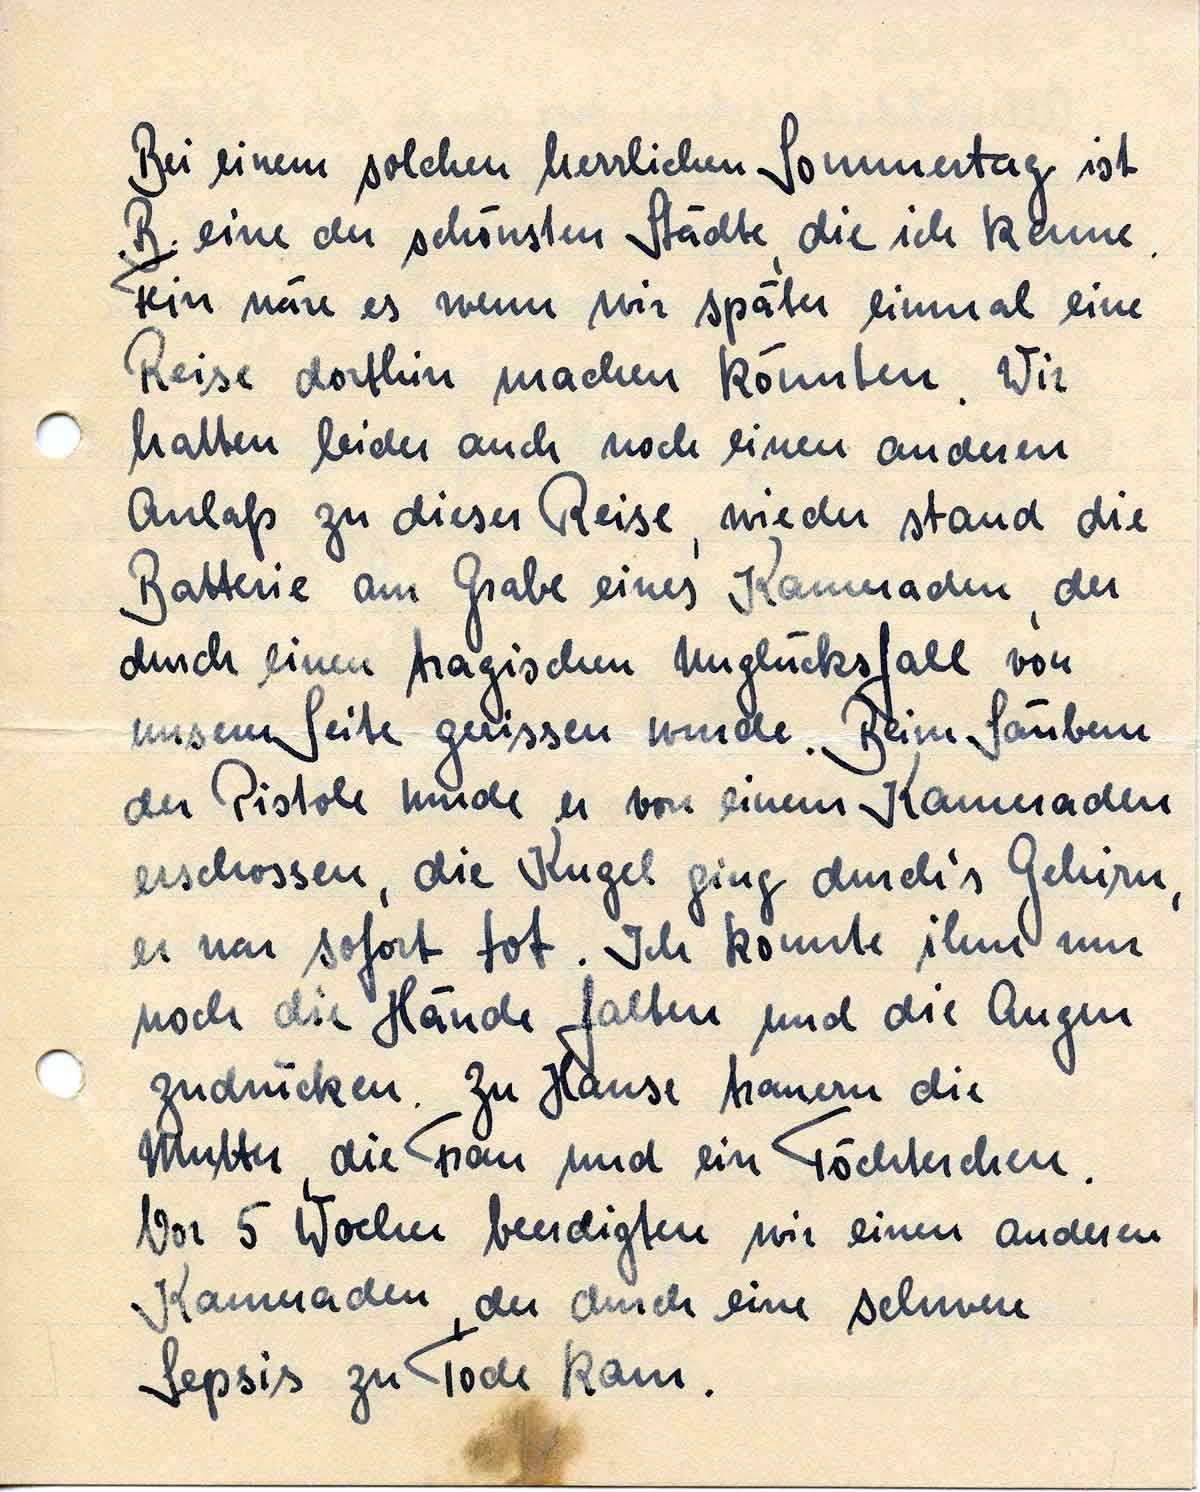 Bei einem solchen herrlichen Sommertag ist
B. eine der schönsten Städte, die ich kenne.
Fein wäre es wenn wir später einmal eine
Reise dorthin machen könnten. Wir
hatten leider auch noch einen anderen
Anlaß zu dieser Reise, wieder stand die
Batterie am Grabe eines Kameraden, der
durch einen tragischen Unglücksfall von
unserer Seite gerissen wurde. Beim Säubern
der Pistole wurde er von einem Kameraden
erschossen, die Kugel ging durch's Gehirn,
er war sofort tot. Ich konnte ihm nur
noch die Hände falten und die Augen
zudrücken. Zu Hause trauern die
Mutter, die Frau und ein Töchterchen.
Vor 5 Wochen beerdigten wir einen anderen
Kameraden, der durch eine schwere
Sepsis zu Tode kam.